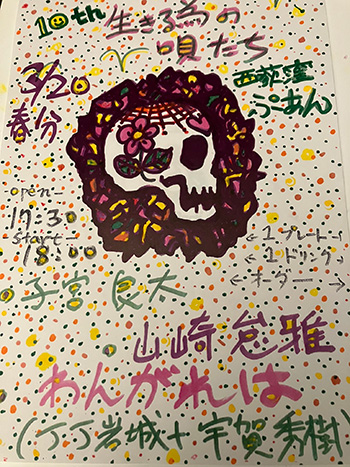 10th 生きる為の
唄たち
3/20
春分
西荻窪
ぷあん
open
17:30
start
18:00
1プレート
1ドリンク
オーダー
子宮良太
山崎怠雅
わんがれは
(JJ岩城+宇賀秀樹)